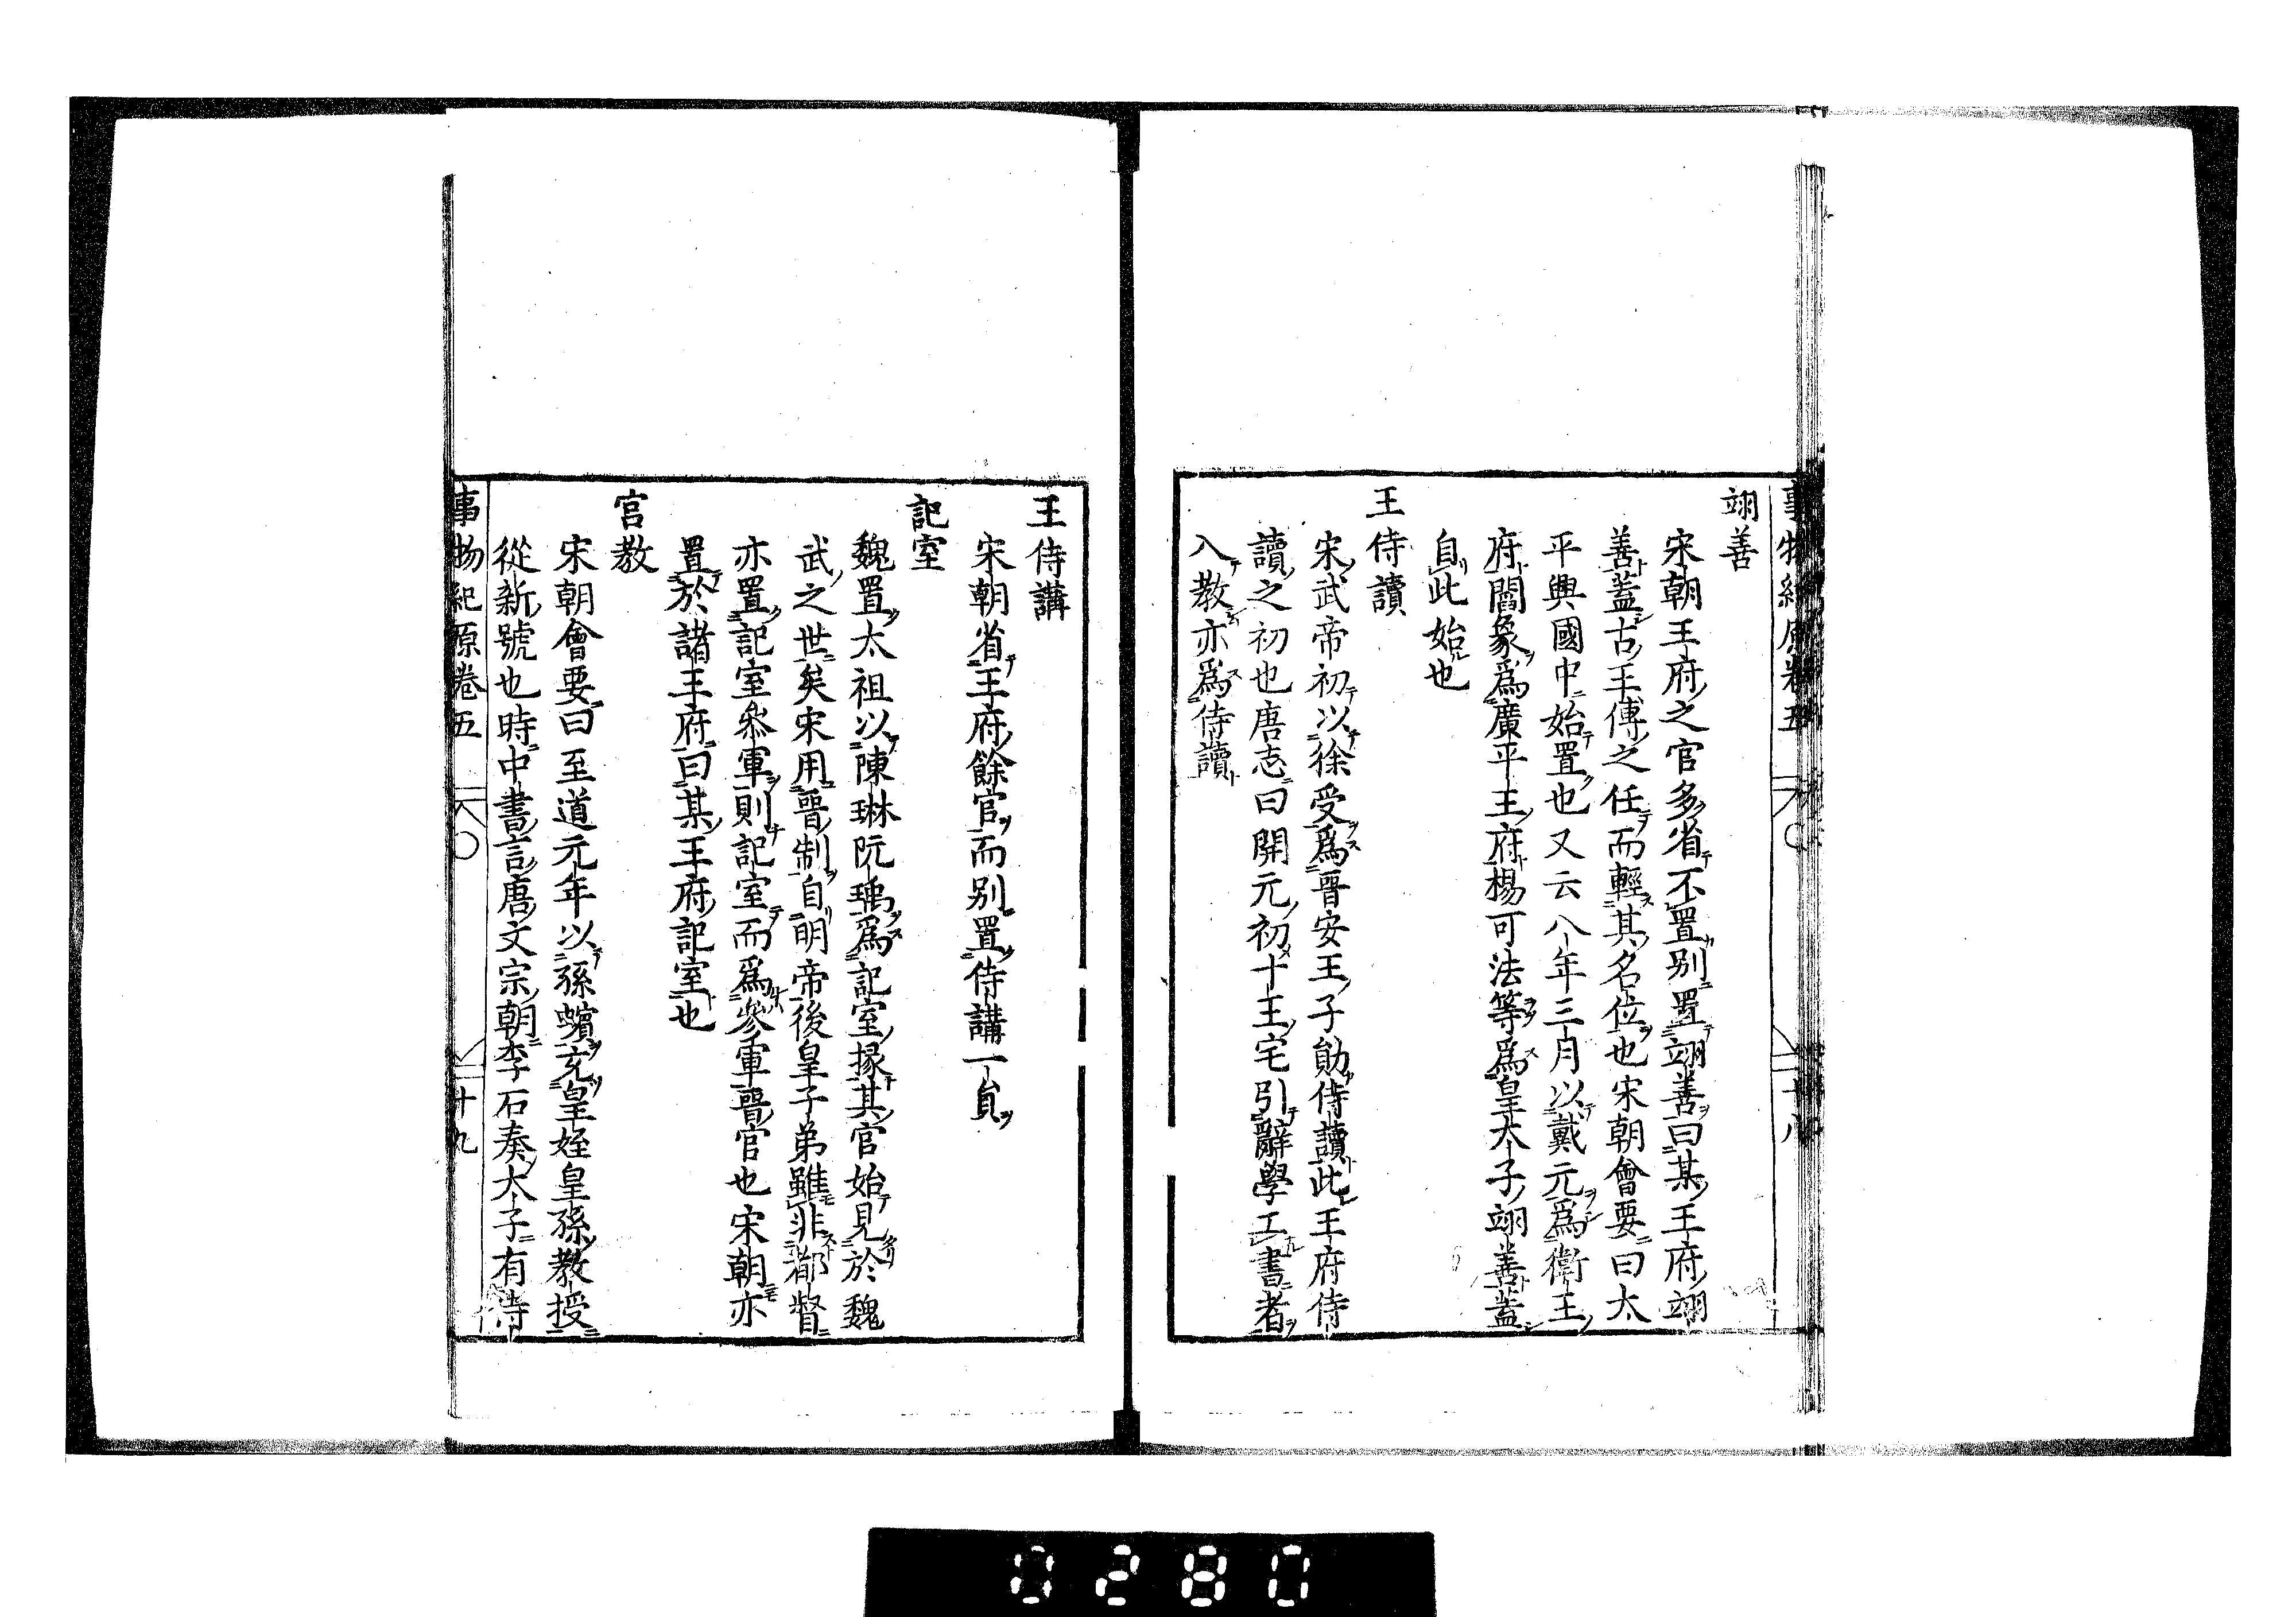 事物紀原卷五
十八
翊善
宋朝王府之官多省不置別置翊善曰某王府翊
善蓋古王傅之任而輕其名位也宋朝會要曰太
平興國中始置也又云八年三月以戴元爲衛王
府閻象爲廣平王府楊可法等爲皇太子翊善蓋
自此始也
王侍讀
宋武帝初以徐受爲晉安王子勛侍讀此王府侍
讀之初也唐志曰開元初十王宅引辭學工書者
入教亦爲侍讀
王侍講
宋朝省王府餘官而別置侍講一員
記室
魏置太祖以陳琳阮瑀爲記室掾其官始見於魏
武之世矣宋用晉制自明帝後皇子弟雖非都督
亦置記室參軍則記室而爲參軍晉官也宋朝亦
置於諸王府曰某王府記室也
官教
宋朝會要曰至道元年以孫蠙充皇姪皇孫教授
從新號也時中書言唐文宗朝李石奏太子有侍
事物紀原卷五
十九
0280